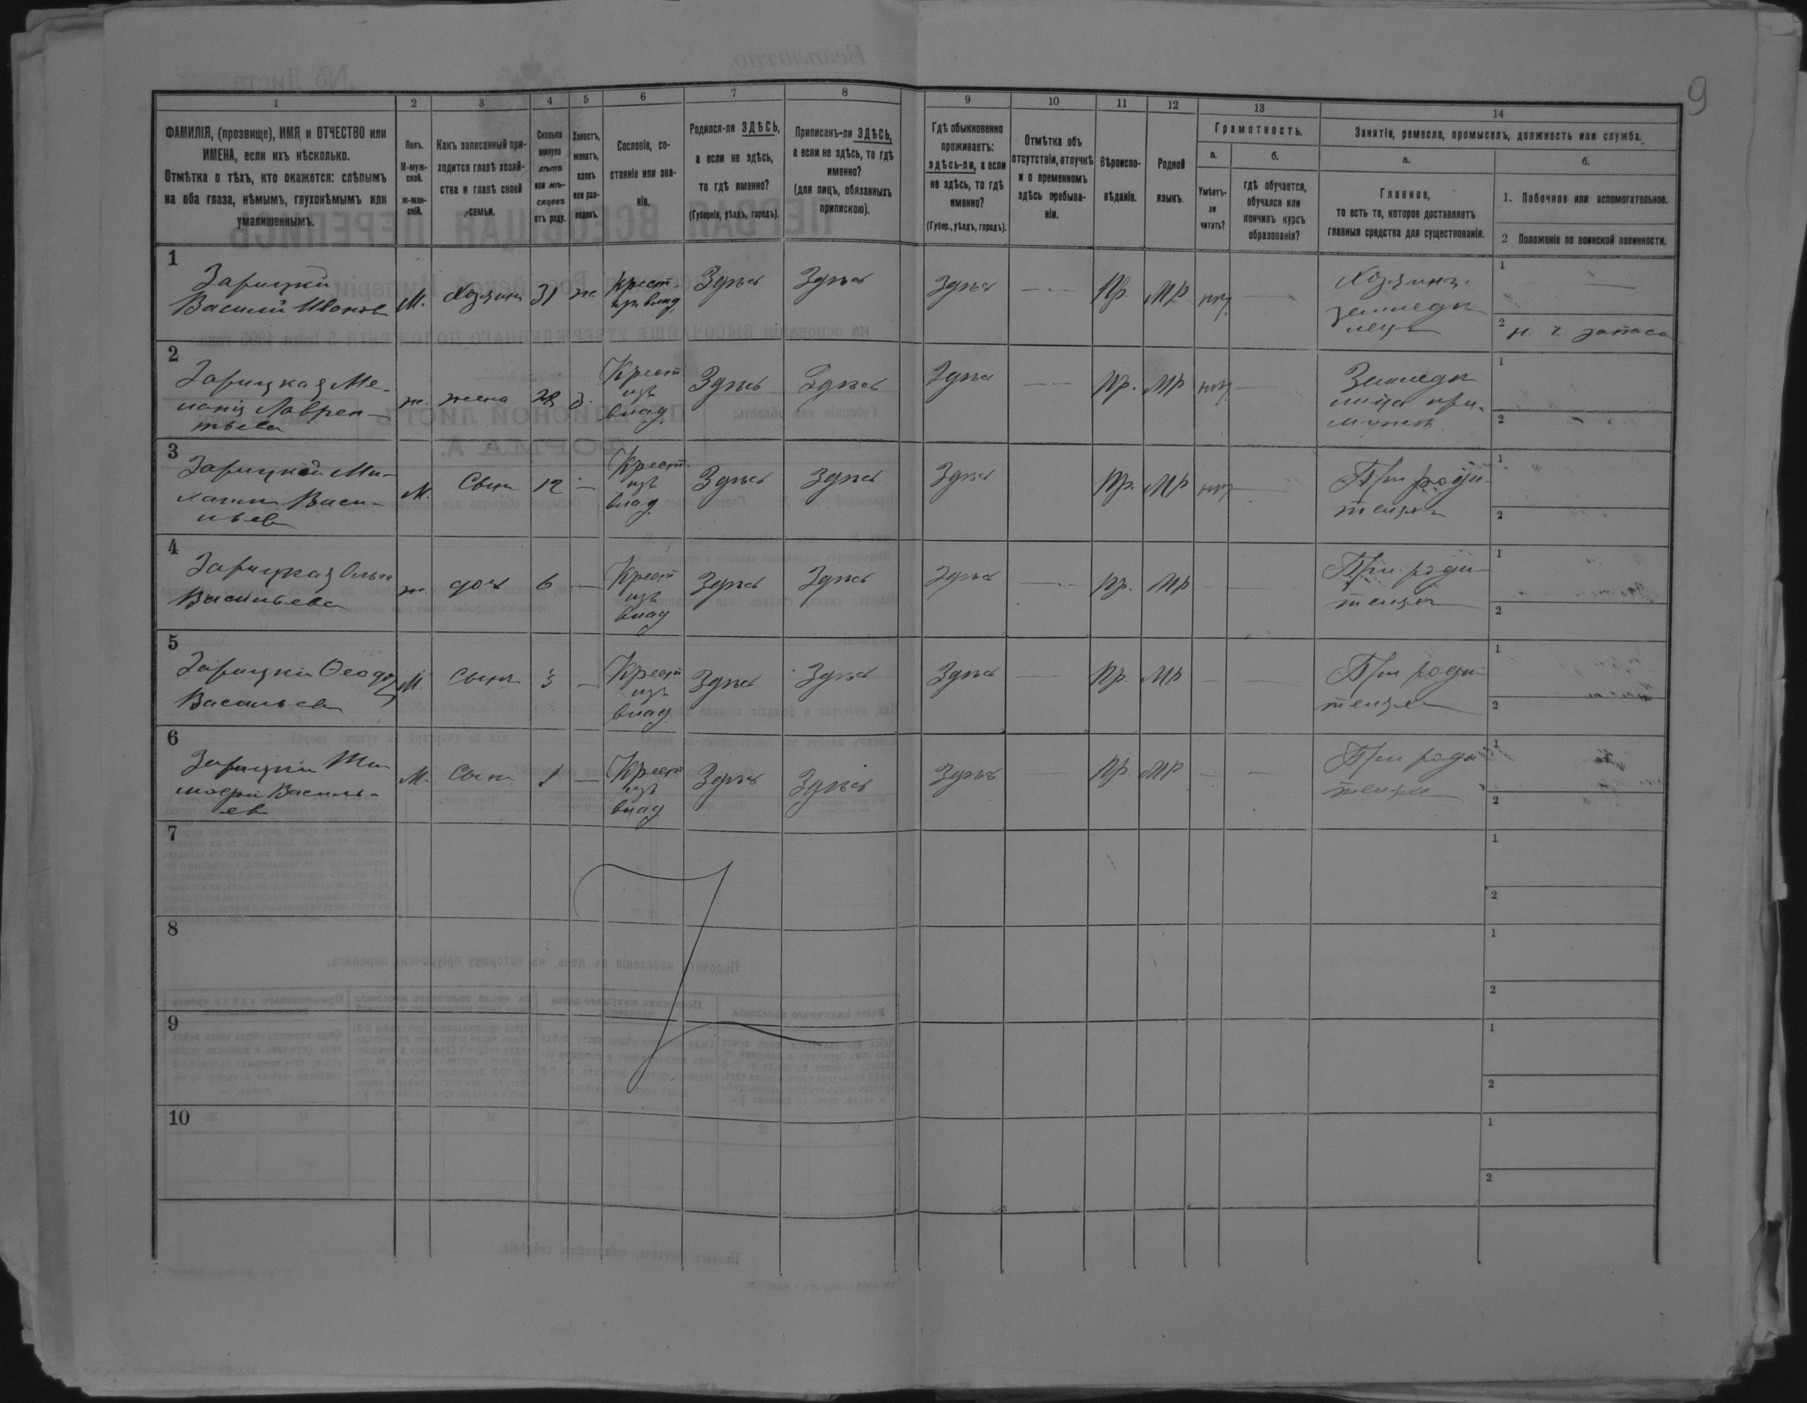 9
1 2 3 4 5 6 7 8 9 10 11 12 13 14
ФАМИЛІЯ, (прозвище), ИМЯ и ОТЧЕСТВО или
ИМЕНА, если ихъ нѣсколько.
Отмѣтка о тѣхъ, кто окажется: слѣпымъ
на оба глаза, нѣмымъ, глухонѣмымъ или
умалишеннымъ.
Полъ.
М-муж-
ской.
ж-жен-
скій.
Какъ записанный при-
ходится главѣ хозяй-
ства и главѣ своей
семьи.
Сколько
минуло
лѣтъ
или мѣ-
сяцевъ
отъ роду.
Холостъ,
женатъ,
вдовъ
или раз-
веденъ.
Сословіе, со-
стояніе или зва-
ніе.
Родился-ли ЗДѢСЬ,
а если не здѣсь,
то гдѣ именно?
(Губернія, уѣздъ, городъ).
Приписанъ-ли ЗДѢСЬ,
а если не здѣсь, то гдѣ
именно?
(для лицъ, обязанныхъ
припискою).
Гдѣ обыкновенно
проживаетъ:
здѣсь-ли, а если
не здѣсь, то гдѣ
именно?
(Губер., уѣздъ, городъ).
Отмѣтка объ
отсутствіи, отлучкѣ
и о временномъ
здѣсь пребыва-
ніи.
Вѣроиспо-
вѣданіе.
Родной
языкъ.
Грамотность.
а.
Умѣетъ-
ли
читать?
б.
гдѣ обучается,
обучался или
кончилъ курсъ
образованія?
Занятіе, ремесло, промыселъ, должность или служба.
а.
Главное,
то есть то, которое доставляетъ
главныя средства для существованія.
б.
1. Побочное или вспомогательное.
2 Положеніе по воинской повинности.
1
Зарицкій
Василій Иванов
М. Хозяинъ 31 ж. Крест.
из влад. Здѣсь Здѣсь Здѣсь — Пр МР нѣт — Хозяинъ
земледѣ
лец
1 —
2 н. ч запаса
2
Зарицкая Ме-
ланія Лаврен
тьева
ж. жена 28 з. Крест
изъ
влад. Здѣсь Здѣсь Здѣсь — Пр. МР нѣт —
1
2
3
Зарицкій Ми-
хаилъ Васи-
льев
М. Сынъ 12 — Крест.
изъ
влад. Здѣсь Здѣсь Здѣсь Пр. МР нѣт — При роди-
теляхъ
1
2
4
Зарицкая Ольга
Васильева
ж. дочь 6 — Крест
изъ
влад Здѣсь Здѣсь Здѣсь — Пр. МР — — При роди-
теляхъ
1
2
5
Зарицкій Ѳеодор
Васильев
М. Сынъ 3 — Крест
изъ
влад. Здѣсь Здѣсь Здѣсь — Пр. МР — — При роди
теляхъ
1
2
6
Зарицкій Ти
мофей Василь-
ев
М. Сынъ 1 — Крест
изъ
влад Здѣсь Здѣсь Здѣсь — Пр. МР — — При роди
теляхъ
1
2
7
1
2
8
1
2
9
1
2
10
1
2